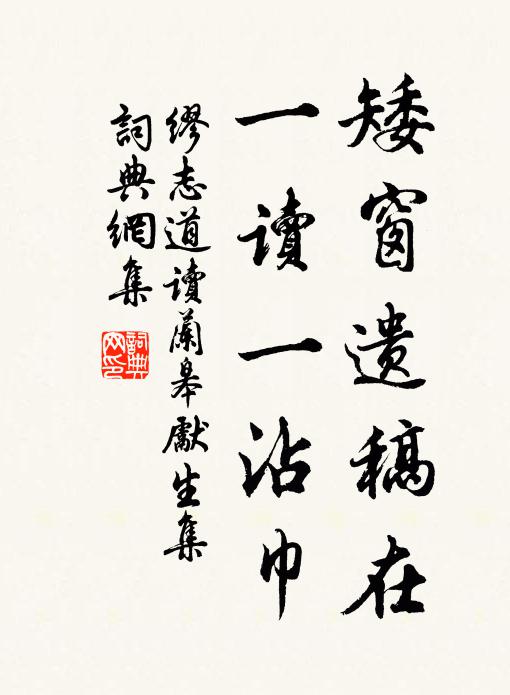 矮窗遺稿在
一讀一沾巾
繆志道讀蘭皋獻生集
詞典網集
詞典网印